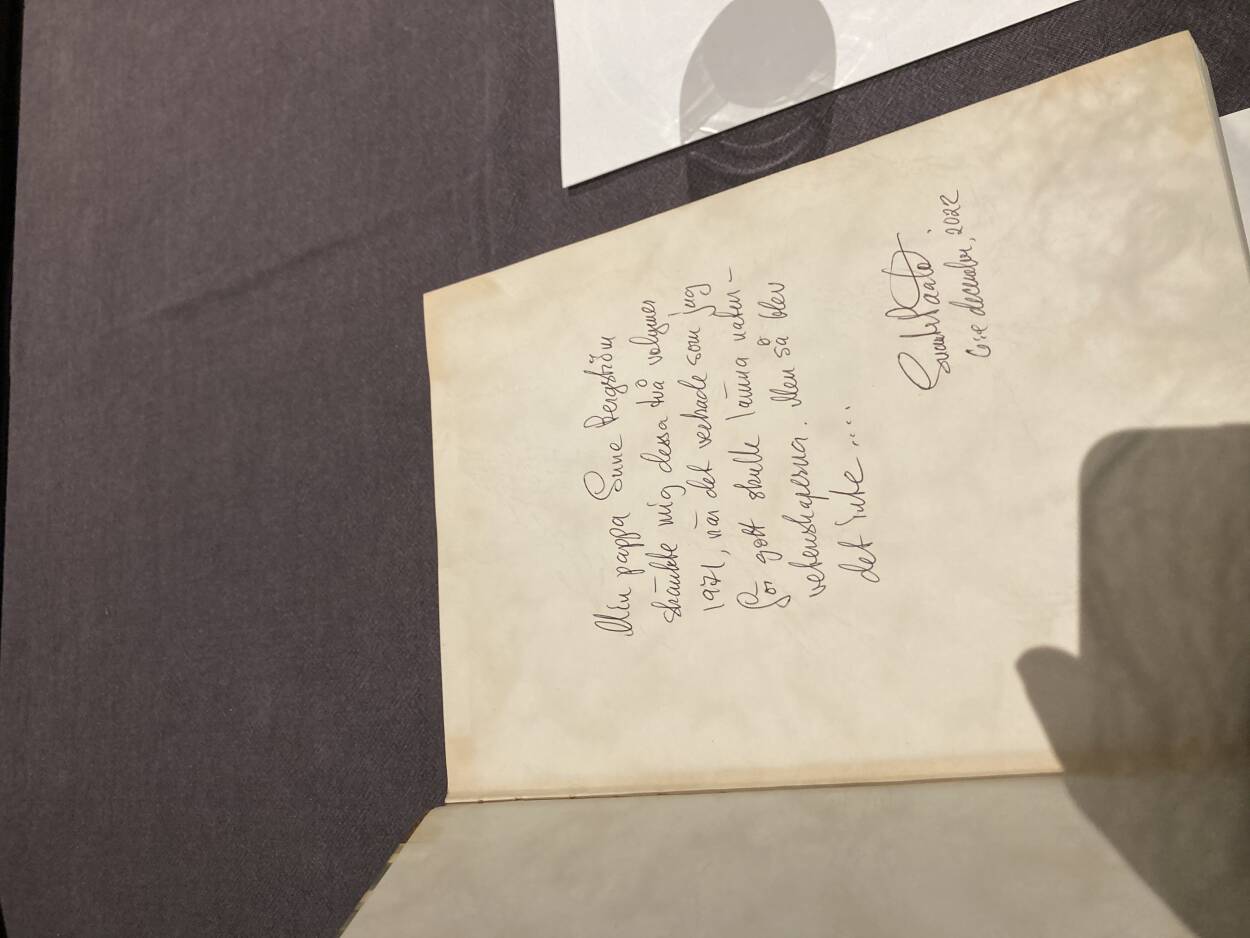 Min pappa Sune Bergström
skänkte mig dessa två volymer
1971, när det verkade som jag
för gott skulle lämna natur-
vetenskaperna. Men så blev
det inte ....
Svante Pääbo
december, 2022